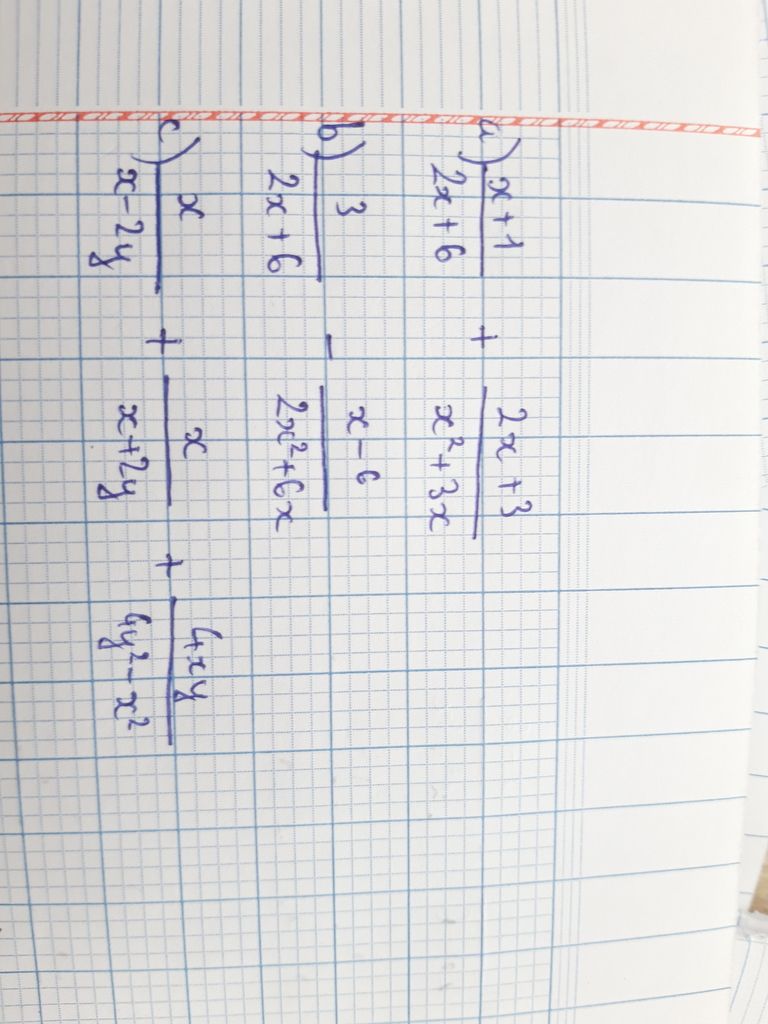 a) x+1/2x+6 + 2x+3/x²+3x
b) 3/2x+6 - x-6/2x²+6x
c) x/x-2y + x/x+2y + 4xy/4y²-x²